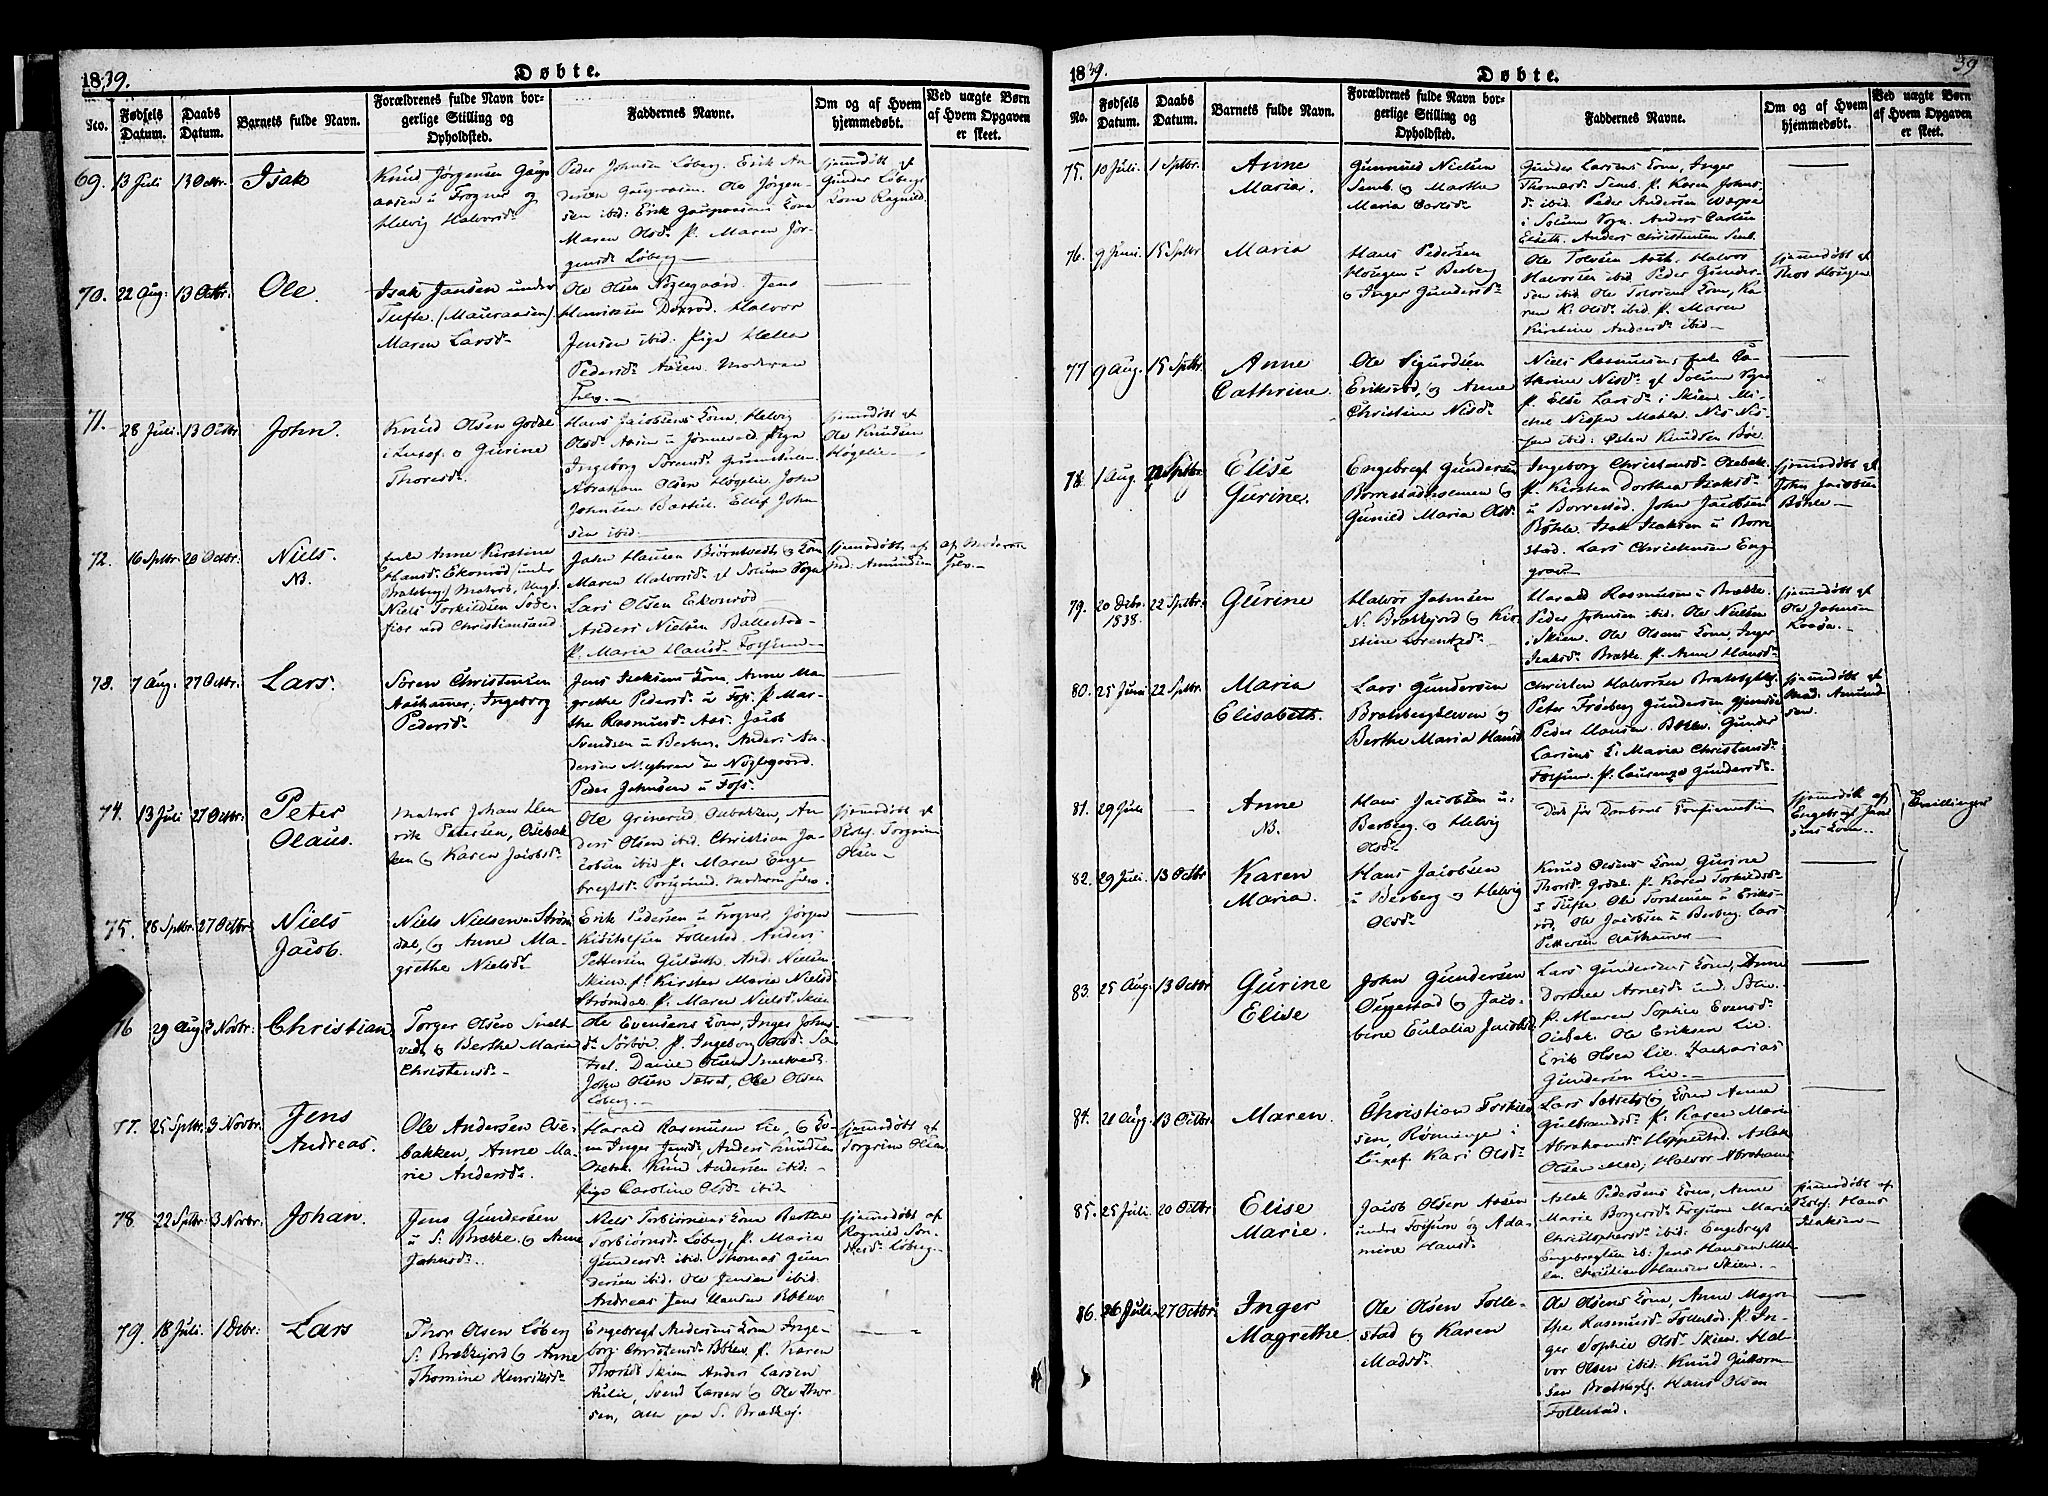 1839.
Døbte.
No.
Fødsels Datum.
Daabs Datum.
Barnets fulde Navn.
Forældrenes fulde Navn borgerlige Stilling og Opholdsted.
Faddernes Navne.
Om og af Hvem hjemmedøbt.
Ved uægte Børn af Hvem Opgaven er skeet.
69. 13 Juli 13 Octbr. Isak
Knud Jørgensen
aasen u Frogner og
Helvig Halvorsd.
Peder Johnsen Løberg. Erik An-
dersen Ole Jørgen-
sen ibid: Erik
Maren Olsd. p. Maren Jør-
gensd. Løberg
hjemmedøbt af
Gunder Løbergs
Kone Ragnild.
70. 22 Aug: 13 Octbr: Ole.
Isak Jansen under
Tufte. (Mauraasen)
Maren Larsd.
Ole Olsen Jens
Henriksen Halvor
Jensen ibid. Pige
Pedersd. Aasen. Moderen
selv.
71. 28 Juli. 13 Octbr John.
Knud Olsen Godal
i Luxef. og Gurine
Thoresd.
Hans Jacobsens Kone, Helvig
Olsd. Aasen u Jønnevald, Pige
Ingeborg
Abraham Olsen Høgelie. John
Johnsen Ellef John-
sen ibid.
hjemmedøbt af
Ole Knudsen
Høgelie
72. 16 Sptbr. 20 Octbr: Niels.
NB.
Anne Kirstine
Hansd. Ekornrød under
Bratsberg / Matros, Ungk.
Niels Torkildsen
ved Christiansand
John Hansen Bjørntvedt og Kone
Maren Halvorsd. af Solum Sogn
Lars Olsen Ekornrød
Anders Nielsen Ballestad
p. Maria Hansd. Fossum
hjemmedøbt af
Amundsen
af Moderen
selv.
73. 7 Aug: 27 Octbr: Lars.
Søren Christensen
Aashammer, Ingeborg
Pedersd.
Jens Isaksens Kone, Anne Ma-
grethe Pedersd. u Foss. p. Mar-
the Rasmusd. Aas. Jacob
Svendsen u Berberg. Anders An-
dersen
Peder Johnsen u Foss.
74. 13 Juli 27 Octbr: Peter
Olaus.
Matros Johan Hen-
rik Petersen, Osebak-
ken og Karen Jacobsd.
Ole Grinerud Osebakken, An-
ders Olsen ibid. Christian Ja-
cobsen ibid p. Maren Enge-
bregtsd. Porsgrund. Moderen selv.
hjemmedøbt af
Torgrim
Olsen
75. 28 Sptbr. 27 Octbr: Niels
Jacob.
Niels Nielsen Strøm-
dal, og Anne Ma-
grethe Nielsd.
Erik Pedersen u Frogner, Jørgen
Kistolfsen Follestad. Anders
Pettersen Gulseth. And. Nielsen
Skien. p. Kirsten Marie Nielsd.
Strømdal. p. Maren Nielsd. Skien
76 29 Aug 3 Novbr: Christian
Torger Olsen Snelt-
vedt og Berthe Maria
Christensd.
Ole Evensens Kone, Inger Johns-
d. Sørbøe. p. Ingeborg Olsd. Sæ-
tret. Daniel Olsen Sneltvedt.
John Olsen Sætret, Ole Olsen
Løberg.
77. 25 Sptbr: 3 Novbr: Jens
Andreas.
Ole Andersen Ose-
bakken, Anne Ma-
rie Andersd.
Harald Rasmusen Lie, og Ko-
ne Inger Jensd. Anders Knudsen
Osebak. Knud Andersen ibid:
Pige Caroline Olsd. ibid.
hjemmedøbt af
Torgrim Olsen
78 22 Sptbr: 3 Novbr: Johan.
Jens Gundersen
u S. Brække og Anne
Johnsd.
Niels Torbiørnsens Kone Berthe
Torbiørnsd. Løberg, p. Maria
Gundersd. ibid. Thomas Gun-
dersen ibid. Ole Jensen ibid.
Andreas Jens Hansen Bøhle
hjemmedøbt af
Ragnild
Løberg
79. 18 Juli. 1 Debr: Lars
Thor Olsen Løberg
S. Brækkejord og Anne
Thomine Henriksd.
Engebregt Andersens Kone Inge-
borg Christensd. Bøhle. p. Karen
Thorsd. Skien Anders Larsen
Aulie, Svend Larsen og Ole Thor-
sen, alle paa S. Brækkej.
1839.
Døbte.
39
No.
Fødsels Datum.
Daabs Datum.
Barnets fulde Navn.
Forældrenes fulde Navn borgerlige Stilling og Opholdsted.
Faddernes Navne.
Om og af Hvem hjemmedøbt.
Ved uægte Børn af Hvem Opgaven er skeet.
75. 10 Juli. 1 Sptbr. Anne
Maria.
Gunnuld Nielsen
Semb. og Marthe
Maria
Gunder Larsens Kone, Inger
Thomasd. Semb. p. Karen Johns-
d. ibid. Peder Andersen
i Solum Sogn. Anders Carlsen
Elseth. Anders Christensen Semb.
76. 9 Juni. 15 Sptbr Maria
Hans Pedersen
Hougen u Berberg
og Inger Gundersd.
Ole Tolvsen Aas. Halvor
Halvorsen ibid. Peder Gunder-
sen ibid. Ole Tolvsens Kone, Ka-
ren K. Olsd. ibid. p. Maren
Kirstine Andersd. ibid
hjemmedøbt af
Thor Hougen
77 9 Aug. 15 Sptbr. Anne
Cathrine.
Ole Sigurdsen
Eriksrød, og Anne
Christine Nisd.
Niels Rasmusen, Ca-
thrine Nisd. af Solum Sogn
p. Else Larsd. i Skien. Mi-
chel Nissen Nis Nis-
sen ibid: Østen Knudsen Bøe.
78. 1 Aug. 22 Sptbr. Elise
Gurine.
Engebregt Gundersen
Borrestadholmen og
Gunild Maria Olsd.
Ingeborg Christensd. Osebak.
p. Kirsten Dorthea Isaksd.
u Borrestad. John Jacobsen
Bøhle. Isak Isaksen u Borre-
stad. Lars Christensen Eng-
grav
hjemmedøbt af
John Jacobsen
Bøhle
79. 20 Debr. 1838. 22 Sptbr. Gurine
Halvor Johnsen
N. Brækkejord og Kir-
stine Lorentzd.
Harald Rasmusen u Brække.
Peder Johnsen ibid. Ole Nielsen
i Skien. Ole Olsens Kone, Inger
Isaksd. Brække. p. Anne Hansd.
hjemmedøbt af
Ole Johnsen
80. 25 Juni 22 Sptbr. Maria
Elisabeth.
Lars Gundersen
Bratsbergkleven og
Berthe Maria Hansd.
Christen Halvorsen Bratsbgklev.
Peter Frøberg Gundersen
Peder Hansen Bøhle. Gunder
Larsens K. Maria Christensd.
Fossum. p. Laurenze Gundersd.
hjemmedøbt af
Mad. Amund-
sen.
81. 29 Juli Anne
NB.
Hans Jacobsen u:
Berberg. og Helvig
Olsd.
Død før Daabens Confirmation
hjemmedøbt af
Engebregt Jen-
sens Kone.
Tvillinger
82. 29 Juli. 13 Octbr Karen
Maria.
Hans Jacobsen
u Berberg og Helvig
Olsd.
Knud Olsens Kone Gurine
Thorsd. Godal. p. Karen Torkildsd.
Tufte Ole Torstensen u Eriks-
rød, Ole Jacobsen u Berberg. Lars
Pettersen Aashammer
83. 25 Aug. 13 Octbr Gurine
Elise
John Gundersen
Oygestad og Jaco-
bine Eulalia Jacobsd.
Lars Gundersens Kone, Anne
Dorthea Arnesd.
p. Maren Sophie Evensd.
Osebak. Ole Eriksen Lie.
Erik Olsen Lie. Zacharias
Gundersen Lie.
84. 21 Aug. 13 Octbr. Maren.
Christian Torkild-
sen, Rønningen i
Luxef. Kari Olsd.
Lars Sætret og Kone Anne
Gulbrandsd. p. Karen Marie
Abrahamsd. Hoppestad. Aslak
Olsen Moe, Halvor Abrahams.
85. 25 Juli. 20 Octbr Elise
Marie.
Jacob Olsen Aasen
under Fossum og Ada-
mine Hansd.
Aslak Pedersens Kone, Anne
Marie Borgersd. Fossum Marie
Christophersd. ibid: Engebregt
Engebregtsen ib: Jens Hansen
Christian Hansen Skien.
hjemmedøbt af
Hans
Isaksen
86. 26 Juli. 27 Octbr: Inger
Magrethe.
Ole Olsen Folle-
stad og Karen
Madsd.
Ole Olsens Kone, Anne Magre-
the Rasmusd. Follestad. p. In-
ger Sophie Olsd. Skien. Hal-
vor Olsen ibid. Knud Guttorm-
sen Hans Olsen
Follestad.